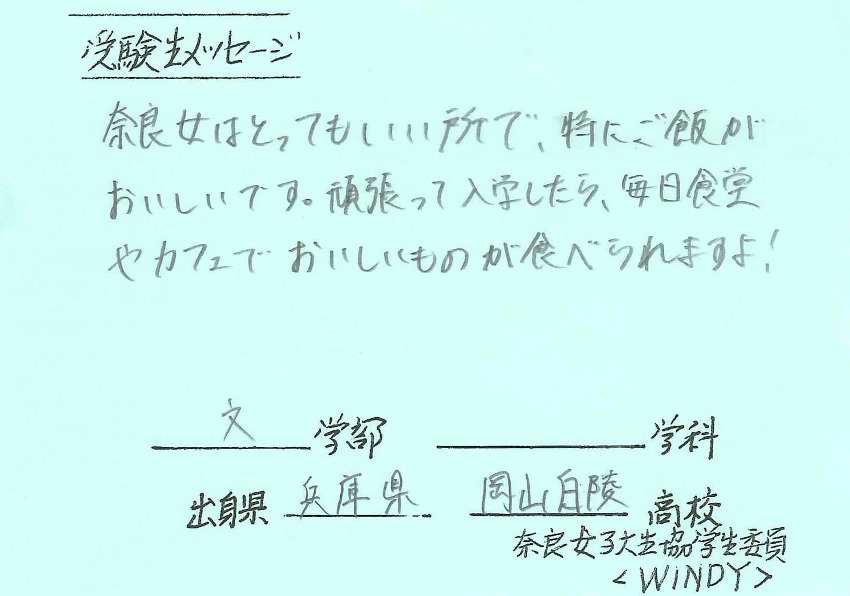 受験生メッセージ
奈良女はとってもいい所で、特にご飯が
おいしいです。頑張って入学したら、毎日食堂
やカフェでおいしいものが食べられますよ!
文 学部 学科
出身県 兵庫県 岡山白陵 高校
奈良女子大生協学生委員
<WINDY>